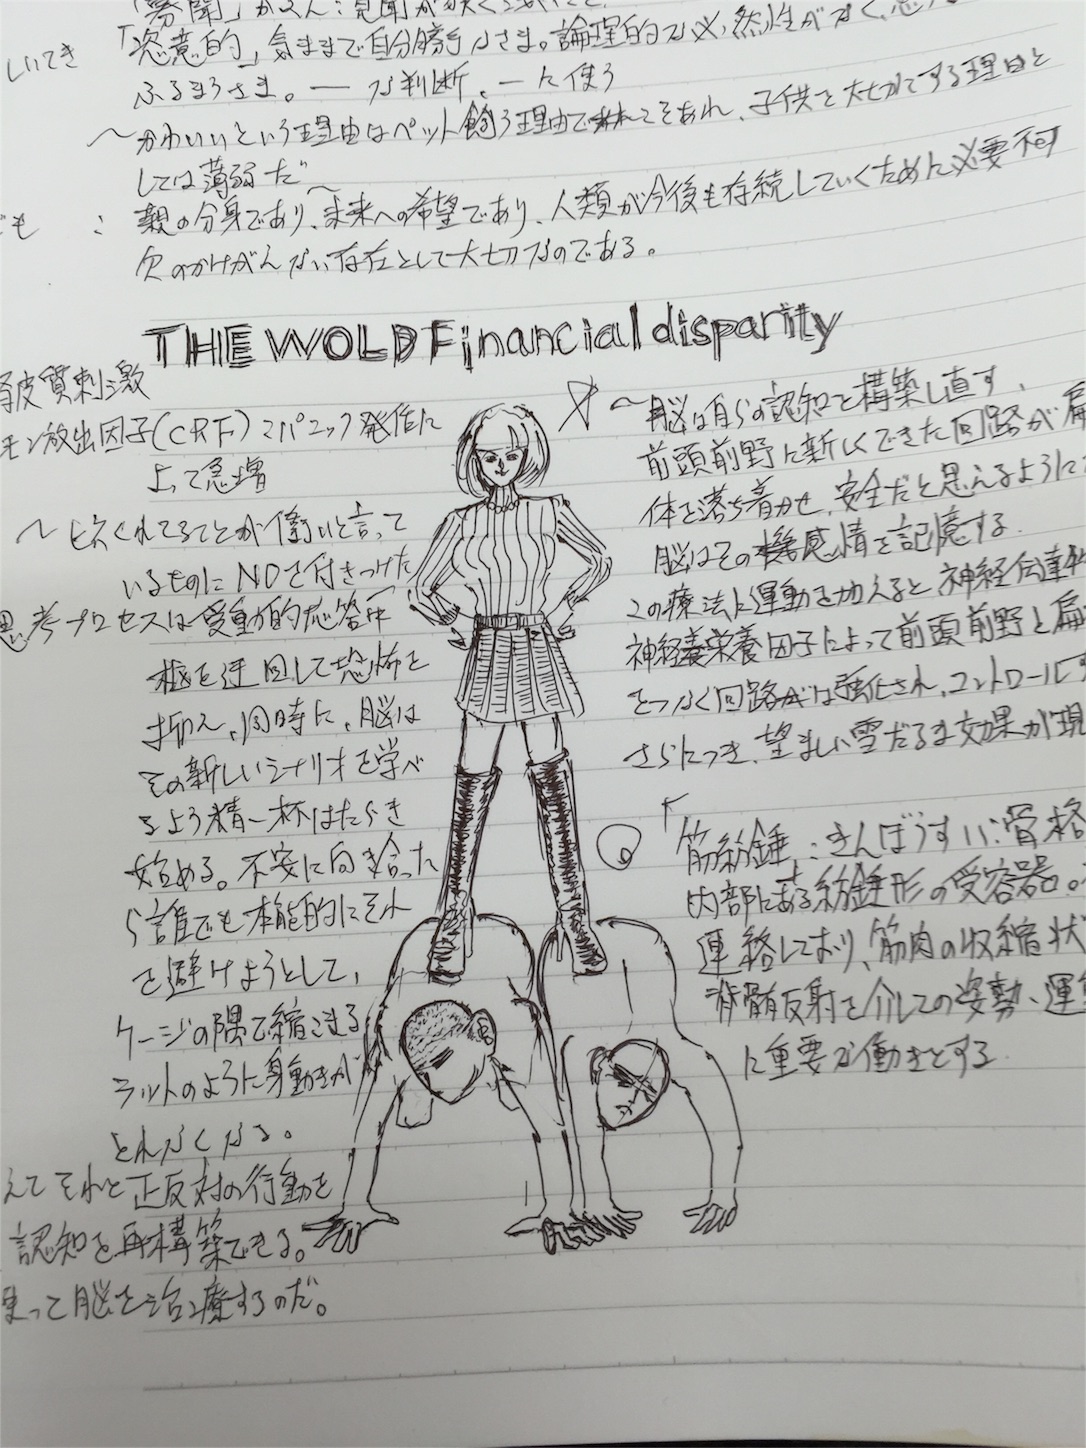 「恣意的」気ままで自分勝手なさま。論理的な必然性がなく、
いてき
ふるまうさま。― な判断、― に使う
～かわいいという理由はペット飼う理由でこそあれ、子供を大切にする理由と
しては薄弱だ～
ども : 親の分身であり、未来への希望であり、人類が今後も存続していくために必要不可
欠のかけがえない存在として大切なのである。
THE WOLD Financial disparity
皮質刺激
モン放出因子(CRF)
パニック発作に
よって急増
いるものにNOを付きつけた
思考プロセスは受動的応答中
枢を迂回して恐怖を
抑え、同時に、脳は
その新しいシナリオを学べ
るよう精一杯はたらき
始める。不安に向き合った
ら誰でも本能的にそれ
を避けようとして、
ケージの隅で縮こまる
ラットのように身動きが
とれなくなる。
えてそれと正反対の行動を
認知を再構築できる。
使って脳を治療するのだ。
～脳は自らの認知を構築し直す、
前頭前野に新しくできた回路が扁
体を落ち着かせ、安全だと思えるように
脳はその感情を記憶する。
この療法に運動を加えると、神経伝達物
神経栄養因子によって前頭前野と扁
をつなぐ回路は強化され、コントロール
さらにつき、望ましい雪だるま効果が現
筋紡錘 : きんぼうすい : 骨格
内部にある紡錘形の受容器。
連絡しており、筋肉の収縮状
脊髄反射を介しての姿勢、運
に重要な働きをする